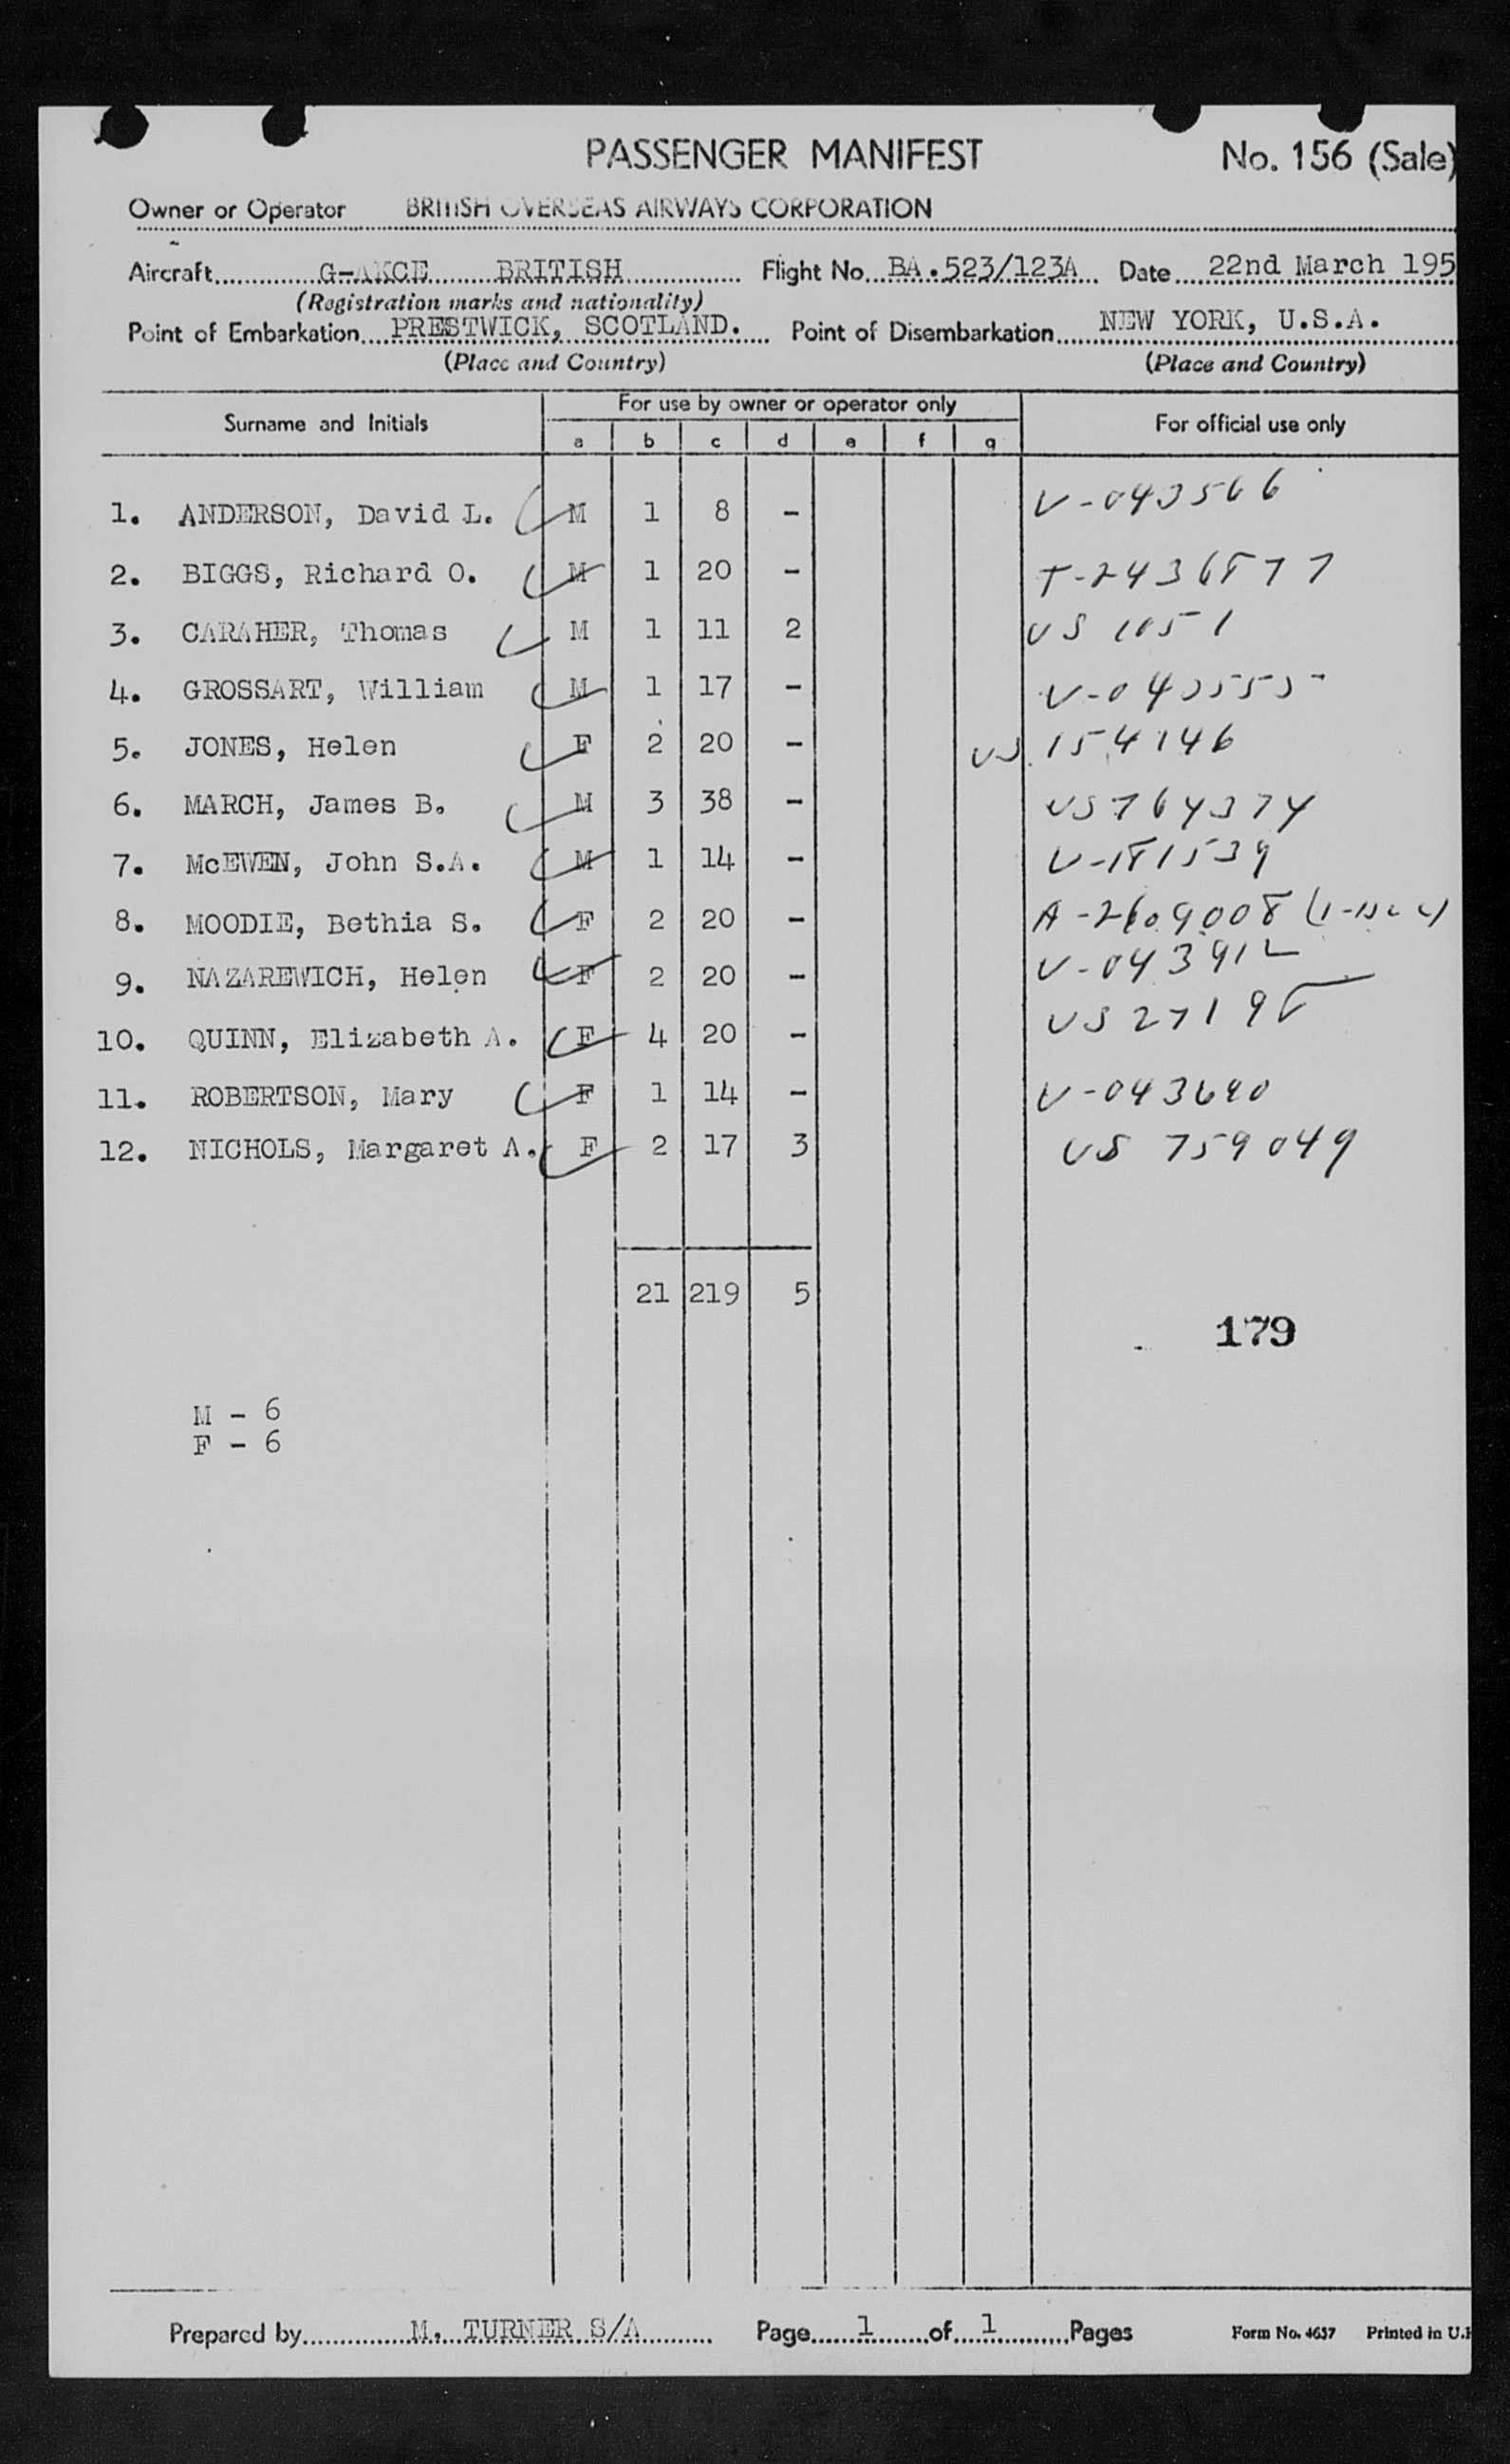 PASSENGER MANIFEST No. 156 (Sale)
Owner or Operator BRITISH OVERSEAS AIRWAYS CORPORATION
Aircraft G-AKCE BRITISH Flight No. BA.523/123A Date 22nd March 195
(Registration marks and nationality)
Point of Embarkation PRESTWICK, SCOTLAND. Point of Disembarkation NEW YORK, U.S.A.
(Place and Country) (Place and Country)
Surname and Initials For use by owner or operator only For official use only
a b c d e f g
1. ANDERSON, David L. M 1 8 - V-043566
2. BIGGS, Richard O. M 1 20 - T-2436877
3. CARAHER, Thomas M 1 11 2 US 1051
4. GROSSART, William M 1 17 -
5. JONES, Helen F 2 20 - US 154146
6. MARCH, James B. M 3 38 - US 764374
7. McEWEN, John S.A. M 1 14 - V-181539
8. MOODIE, Bethia S. F 2 20 - A-2609008
9. NAZAREWICH, Helen F 2 20 - V-043912
10. QUINN, Elizabeth A. F 4 20 - US 27198
11. ROBERTSON, Mary F 1 14 - V-043640
12. NICHOLS, Margaret A. F 2 17 3 US 759049
21 219 5
179
M - 6
F - 6
Prepared by M. TURNER S/A Page 1 of 1 Pages Form No. 4637 Printed in U.K